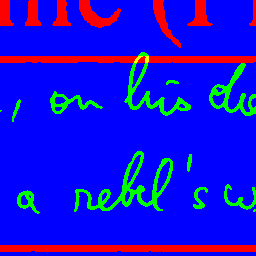 , on his de
a rebel's w